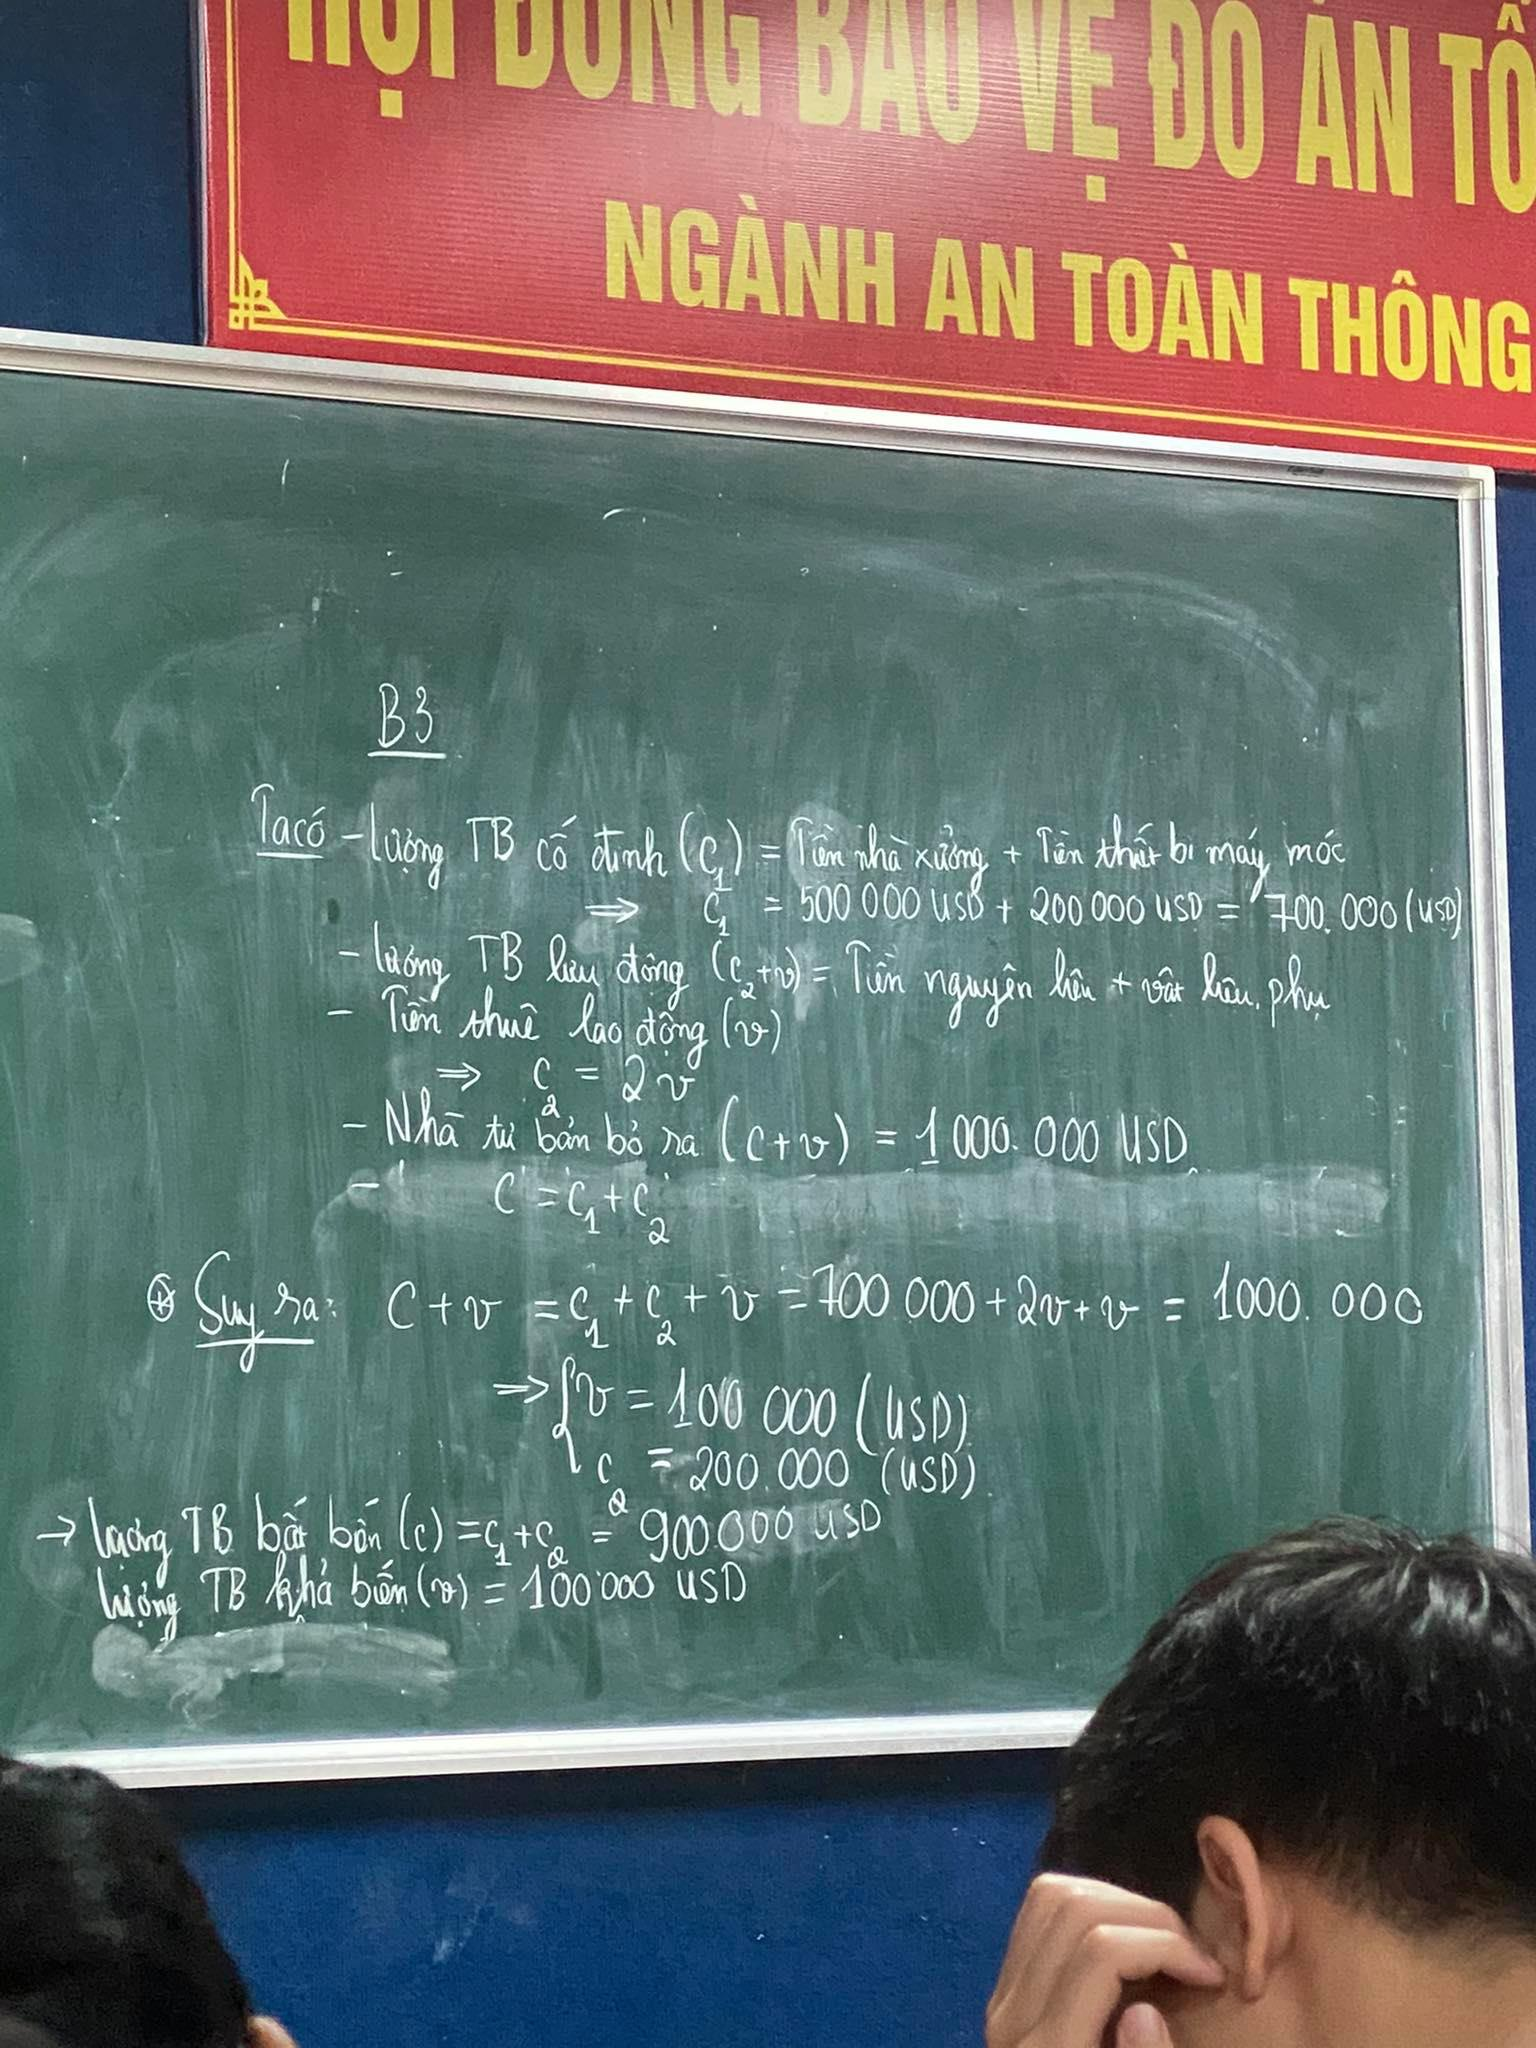 HỘI ĐỒNG BẢO VỆ ĐỒ ÁN TỐ
NGÀNH AN TOÀN THÔNG
B3
Ta có - lượng TB cố định (C1) = Tiền nhà xưởng + Tiền thiết bị máy móc
=> C1 = 500 000 USD + 200 000 USD = 700.000 (USD)
- lượng TB lưu động (C2+v) = Tiền nguyên liệu + vật liệu phụ
- Tiền thuê lao động (v)
=> C2 = 2v
- Nhà tư bản bỏ ra (C+v) = 1 000.000 USD
- C = C1 + C2
⊛ Suy ra: C + v = C1 + C2 + v = 700 000 + 2v + v = 1000.000
=> { v = 100 000 (USD)
C2 = 200.000 (USD)
→ lượng TB bất biến (C) = C1 + C2 = 900.000 USD
lượng TB khả biến (v) = 100 000 USD